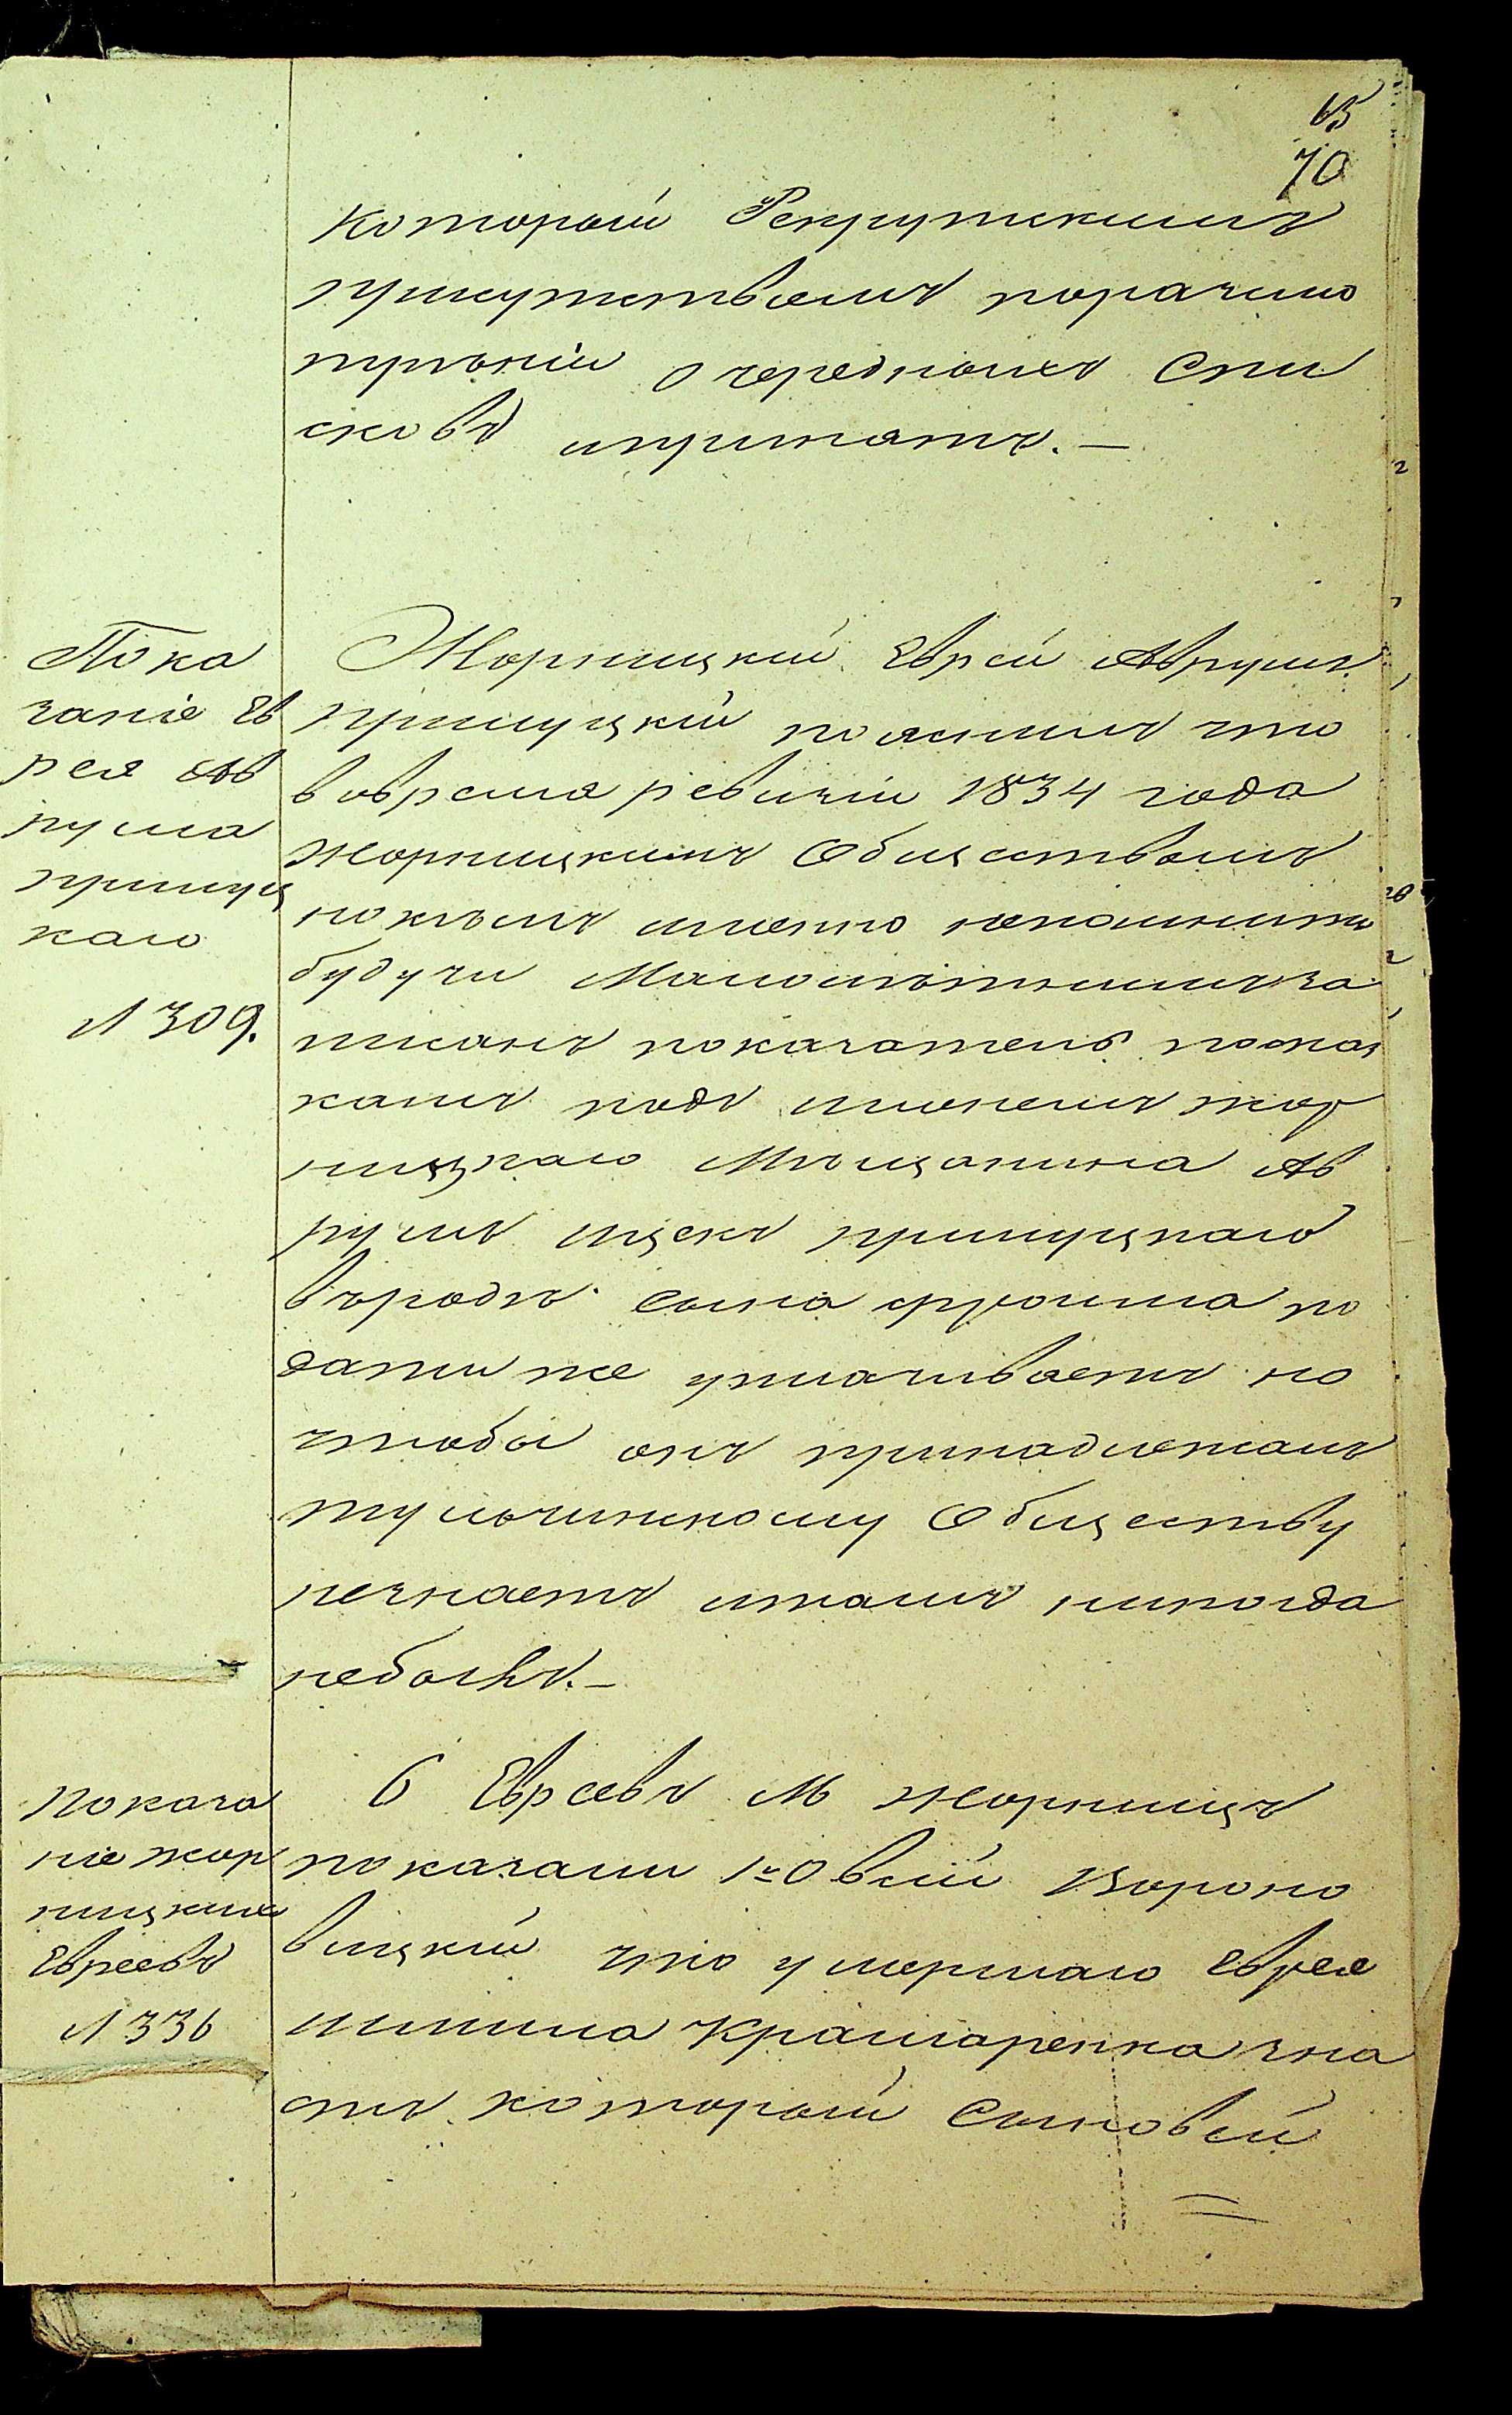 65
70
который Рекрутскимъ
присутствiемъ поразсмо
трѣнiи очередныхъ Спи
сковъ ипринятъ. —
Пока
занiе Ев
рея Ав
рума
прилуц
каго
Л 309.
Жорнищкiй Еврей Аврумъ
прилуцкiй пояснилъ что
вовремя ревизiи 1834 года
жорнищкимъ Обществомъ
но кѣмъ именно непомнитъ
будучи Малолѣтнимъ за
писанъ показатель посказ
камъ подъ именемъ жор
ницкаго Мѣщанина Ав
румъ Ицекъ прилуцкаго
въродѣ сына фроима по
датиже уплачиваетъ но
чтобы онъ принадлежалъ
тульчинскому Обществу
незнаетъ итамъ никогда
небылъ. —
Показа
нiе жор
нищкихъ
Евреевъ
Л 336
6 Евреевъ М Жорнищъ
показали 1й Овсiй Вороно
вицкiй что умершаго еврея
Шлиома Крамаренка зна
етъ который Сыновей
=